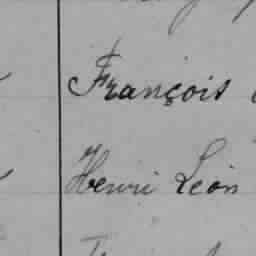 François
Henri Léon